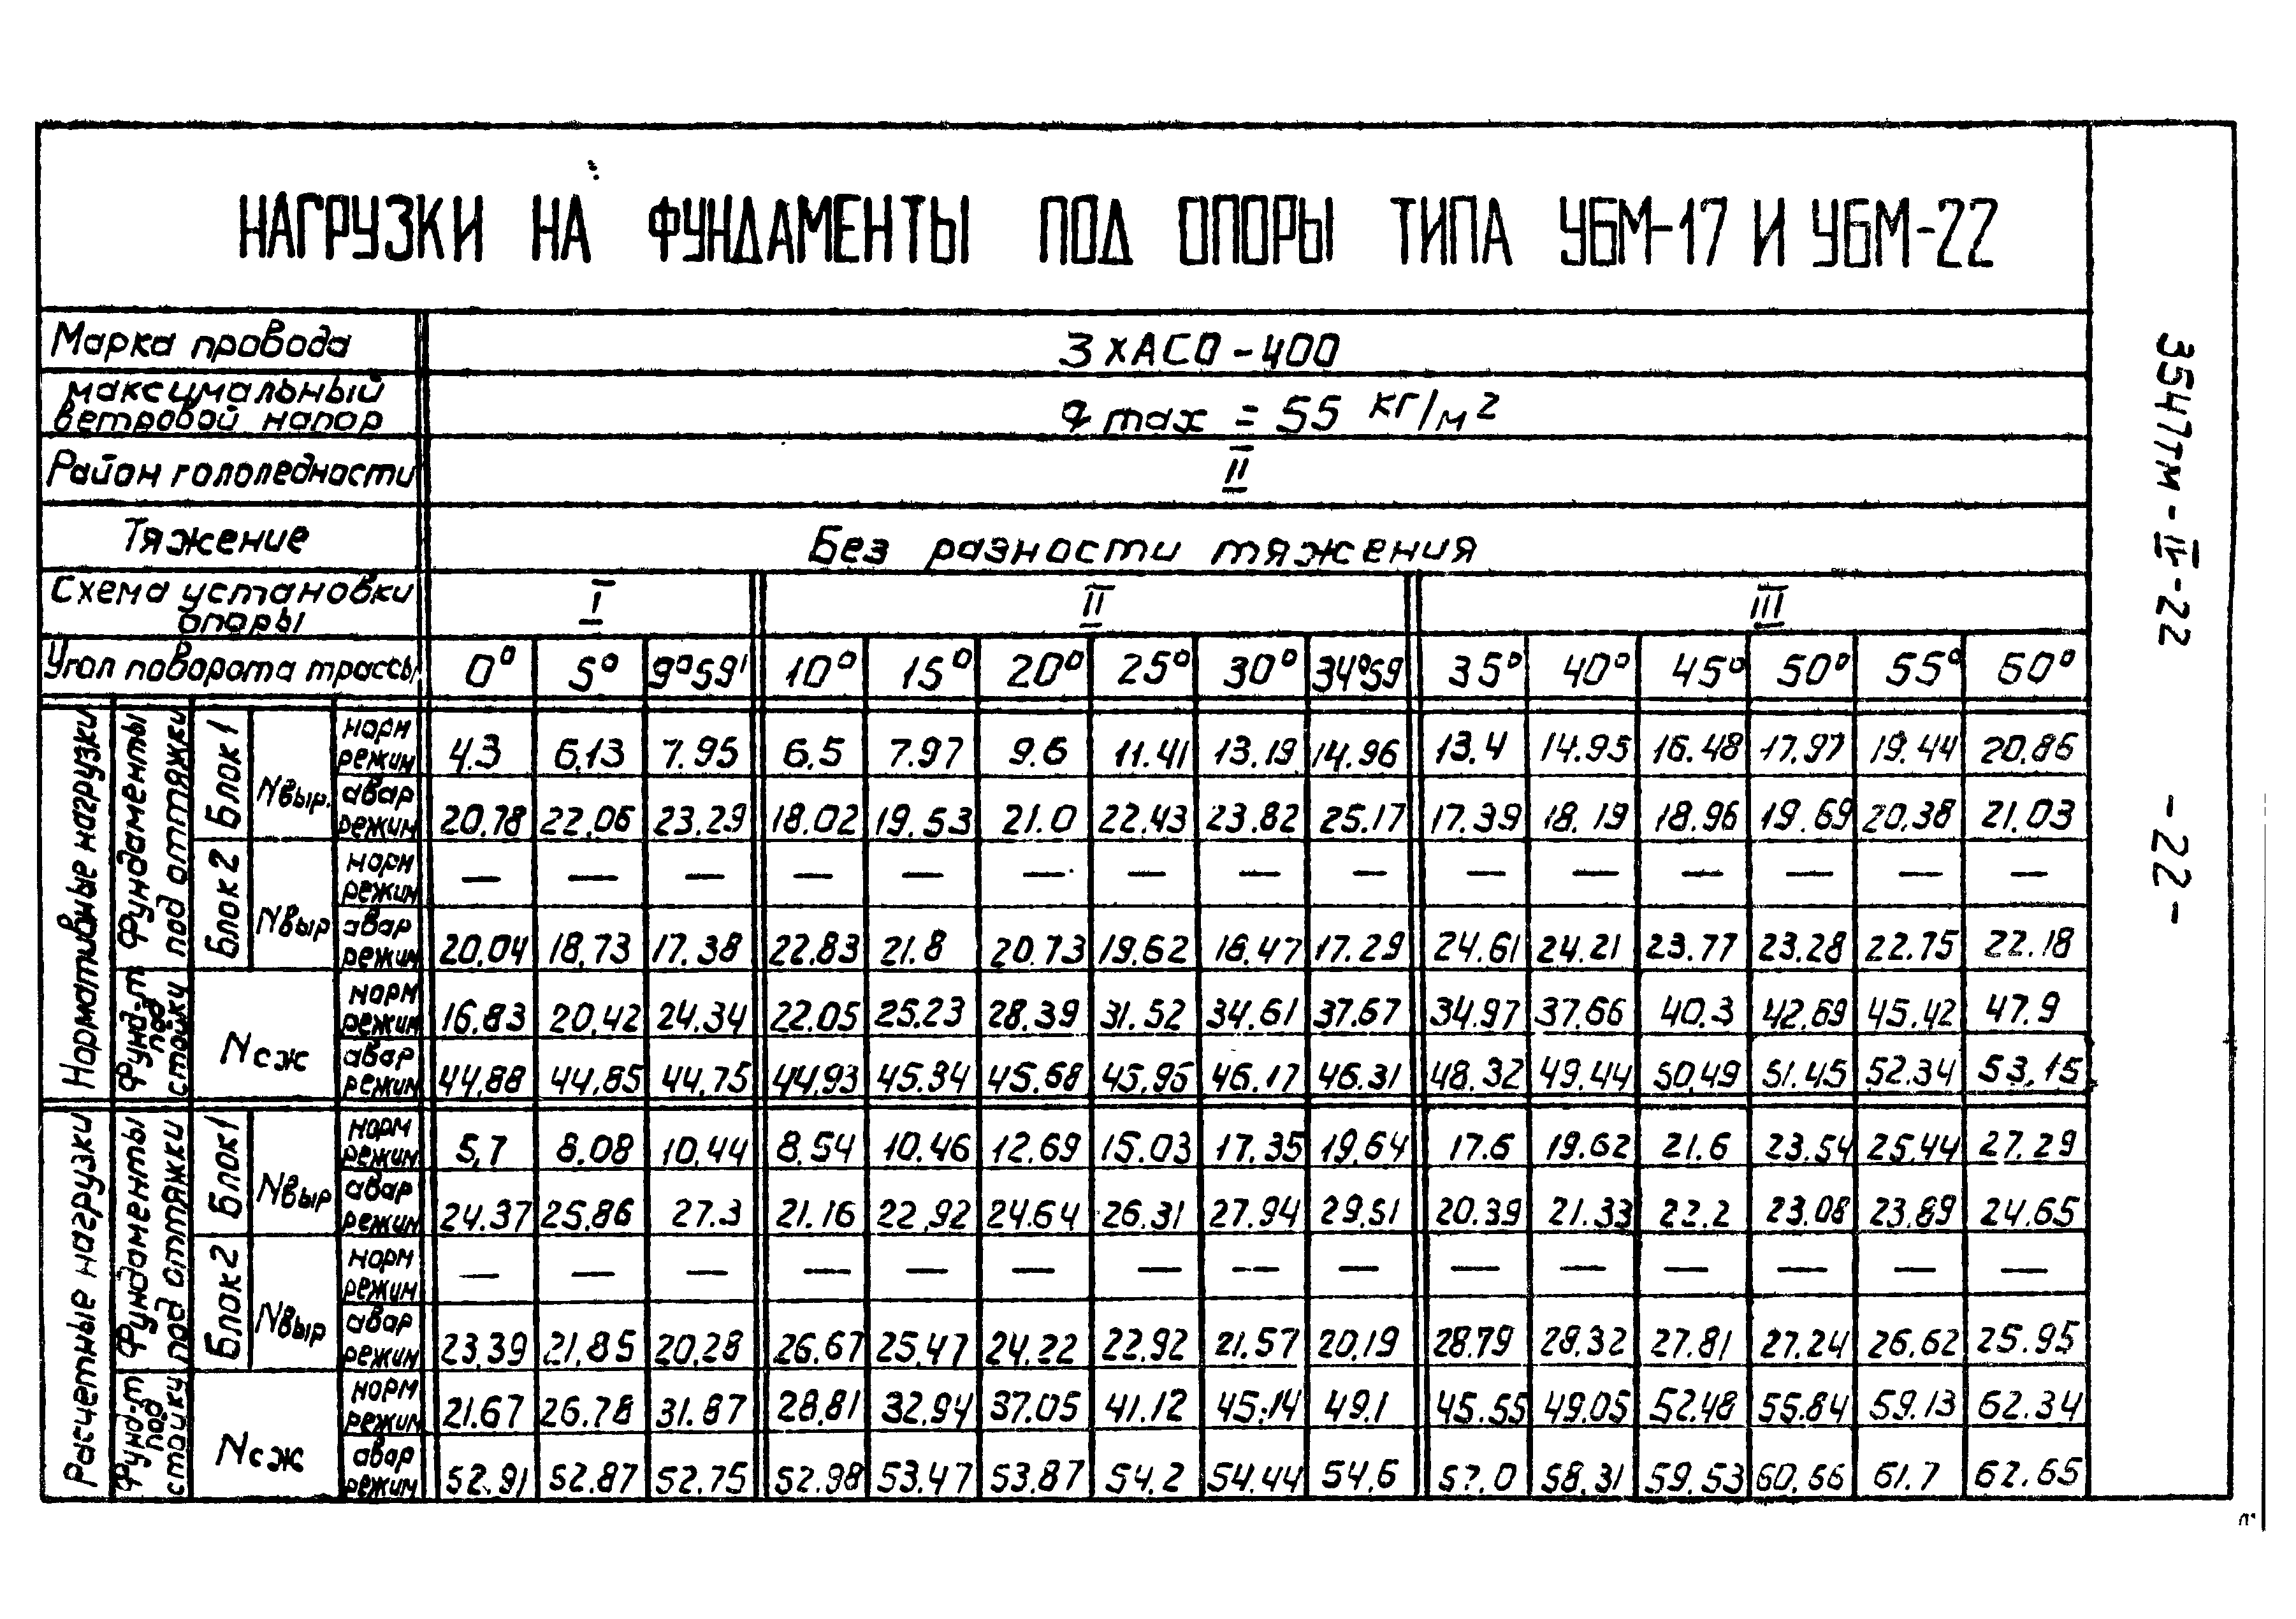 НАГРУЗКИ НА ФУНДАМЕНТЫ ПОД ОПОРЫ ТИПА УБМ-17 И УБМ-22
Марка провода 3хАСО-400
максимальный
ветровой напор q max = 55 кг/м2
Район гололедности II
Тяжение Без разности тяжения
Схема установки
опоры I II III
Угол поворота трассы 0° 5° 9°59' 10° 15° 20° 25° 30° 34°59 35° 40° 45° 50° 55° 60°
Нормативные нагрузки
Фундаменты
под оттяжки
Блок 1
Nвыр.
норм
режим 4.3 6,13 7.95 6,5 7.97 9.6 11.41 13.19 14.96 13.4 14.95 16.48 17.97 19.44 20.86
авар
режим 20.78 22.06 23.29 18.02 19.53 21.0 22.43 23.82 25.17 17.39 18.19 18.96 19.69 20.38 21.03
Блок 2
Nвыр
норм
режим — — — — — — — — — — — — — — —
авар
режим 20.04 18,73 17.38 22.83 21.8 20.73 19.62 18.47 17.29 24.61 24.21 23.77 23.28 22.75 22.18
Фунд-т
под
стойку
Nсж
норм
режим 16.83 20,42 24,34 22.05 25.23 28.39 31.52 34.61 37.67 34.97 37.66 40.3 42.89 45.42 47.9
авар
режим 44,88 44,85 44,75 44,93 45.34 45.68 45,95 46.17 46.31 48.32 49.44 50,49 51.45 52.34 53,15
Расчетные нагрузки
Фундаменты
под оттяжки
Блок 1
Nвыр
норм
режим 5,7 8.08 10,44 8.54 10.46 12.69 15.03 17.35 19,64 17.6 19.62 21.6 23.54 25,44 27.29
авар
режим 24.37 25.86 27.3 21.16 22,92 24.64 26.31 27.94 29,51 20.39 21.33 22.2 23.08 23.89 24.65
Блок 2
Nвыр
норм
режим — — — — — — — — — — — — — — —
авар
режим 23,39 21,85 20,28 26.67 25,47 24.22 22.92 21.57 20,19 28.79 28.32 27.81 27.24 26.62 25.95
Фунд-т
под
стойку
Nсж
норм
режим 21.67 26.78 31.87 28,81 32.94 37.05 41.12 45.14 49.1 45.55 49.05 52.48 55.84 59.13 62.34
авар
режим 52.91 52.87 52.75 52.98 53.47 53.87 54.2 54.44 54.6 58.31 59.53 60.66 61.7 62.65
3547тм-II-22 -22-